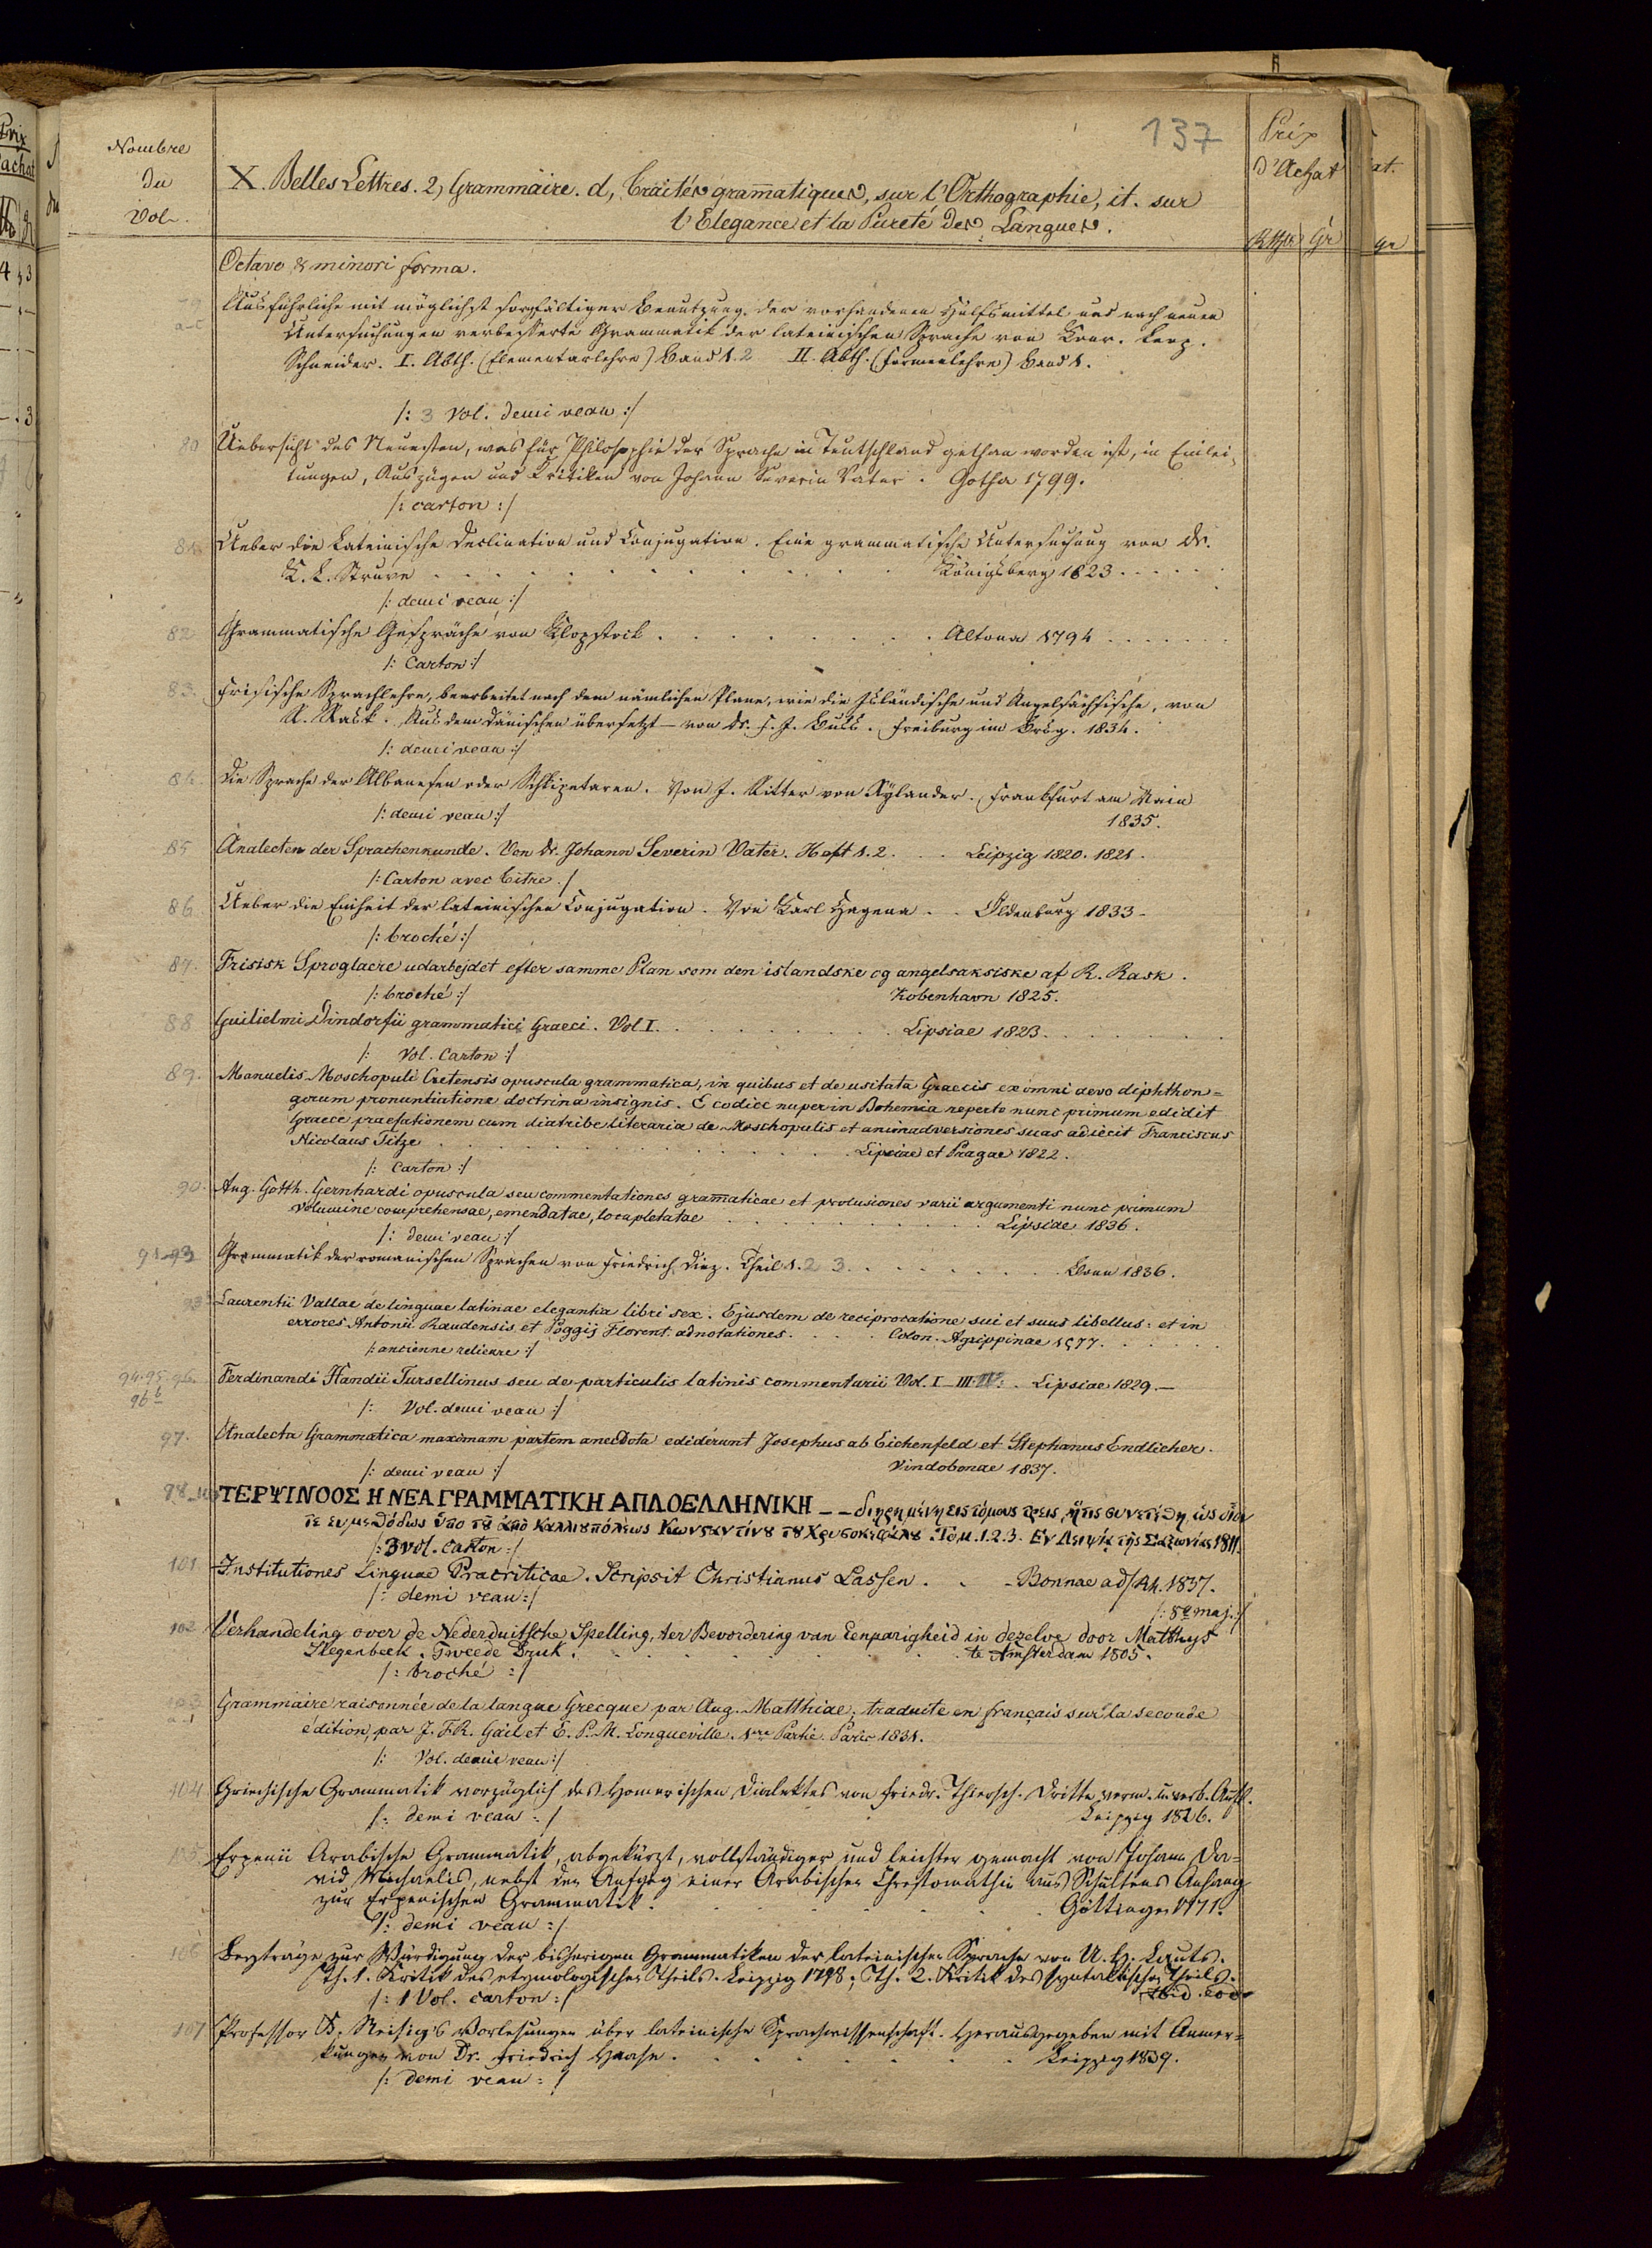 137
Nombre
du
Vol.
X. Belles Lettres. 2, Grammaire. d, Traités gram̄atiques, sur l'Orthographie, it. sur
l'Elegance et la Pureté des Langues.
Prix
d'Achat
Rthlr Gr
Octavo & minori forma.
79
a-c
Ausführliche mit möglichst sorgfältiger Benutzung der vorhandenen Hülfsmittel und nach neuen
Untersuchungen verbesserte Grammatik der lateinischen Sprache von Konr. Leop.
Schneider. I. Abth. (Elementarlehre) Band 1. 2 II. Abth. (Formenlehre) Band 1.
/: 3 Vol. demi veau :/
80
Uebersicht des Neuesten, was für Philosophie der Sprache in Teutschland gethan worden ist, in Einlei-
tungen, Auszügen und Kritiken von Johann Severin Vater. Gotha 1799.
/: carton :/
81.
Ueber die Lateinische Declination und Conjugation. Eine grammatische Untersuchung von Dr.
K. L. Struve . . . Königsberg 1823 . . .
/: demi veau :/
82
Grammatische Gespräche von Klopstock . . . Altona 1794 . . .
/: Carton :/
83.
Frisische Sprachlehre, bearbeitet nach dem nämlichen Plane, wie die Isländische und Angelsächsische, von
R. Rask. Aus dem Dänischen übersetzt – von Dr. F. J. Buss. Freiburg im Brsg. 1834.
/: demi veau :/
84.
Die Sprache der Albanesen oder Schkipetaren. Von J. Ritter von Xylander. Frankfurt am Main
/: demi veau :/ 1835.
85
Analecten der Sprachenkunde. Von Dr. Johann Severin Vater. Heft 1. 2. . . Leipzig 1820. 1821.
/: Carton avec titre. /
86
Ueber die Einheit der lateinischen Conjugation. Von Karl Hagena . . Oldenburg 1833 –
/: broché :/
87.
Frisisk Sproglaere udarbejdet efter samme Plan som den islandske og angelsaksiske af R. Rask.
/: broché :/ Kobenhavn 1825.
88
Guilielmi Dindorfii grammatici Graeci. Vol I. . . . Lipsiae 1823. . . .
/: Vol. Carton :/
89.
Manuelis Moschopuli Cretensis opuscula grammatica, in quibus et de usitata Graecis ex omni aevo diphthon=
gorum pronuntiatione doctrina insignis. E codice nuper in Bohemia reperto nunc primum edidit
Graece praefationem cum diatribe literaria de Moschopulis et animadversiones suas adiecit Franciscus
Nicolaus Titze . . . Lipsiae et Pragae 1822.
/: Carton :/
90.
Aug. Gotth. Gernhardi opuscula seu commentationes gram̄aticae et prolusiones varii argumenti nunc primum
volumine comprehensae, emendatae, locupletatae . . . Lipsiae 1836.
/: demi veau :/
91–93
Grammatik der romanischen Sprachen von Friedrich Diez. Theil 1. 2 3. . . . Bonn 1836.
93b
Laurentii Vallae de linguae latinae elegantia libri sex. Ejusdem de reciprocatione sui et suus libellus: et in
errores Antonii Raudensis et Poggij Florent. adnotationes. . . . Colon. Agrippinae 1577. . . .
/: ancienne relieure :/
94. 95. 96.
96 b
Ferdinandi Handii Tursellinus seu de particulis latinis commentarii Vol. I–III IV. . Lipsiae 1829. –
/: Vol. demi veau :/
97.
Analecta Grammatica maximam partem anecdota ediderunt Josephus ab Eichenfeld et Stephanus Endlicher.
/: demi veau :/ Vindobonae 1837.
98–100
ΤΕΡΨΙΝΟΟΣ Η ΝΕΑ ΓΡΑΜΜΑΤΙΚΗ ΑΠΛΟΕΛΛΗΝΙΚΗ – – διηρημένη εις τόμους τρεις, ἥτις συνετέθη, ὡς οἷόν
τε εὐμεθόδως ὑπο τȣ̃ ἀπὸ Καλλιȣπόλεως Κωνϛαντίνȣ τȣ Χρυσοκεφάλȣ. Τομ. 1. 2. 3. Εν Λειψίᾳ τῆς Σαξωνίας 1811.
/: 3 Vol. Carton :/
101
Institutiones Linguae Pracriticae. Scripsit Christianus Lassen. . . – Bonnae ad/Rh. 1837.
/: demi veau :/ /: 8º maj. :/
102
Verhandeling over de Nederduitsche Spelling, ter Bevordering van Eenparigheid in dezelve door Matthys
Siegenbeek. Tweede Druk. . . . te Amsterdam 1805.
/: broché :/
103
Grammaire raisonnée de la langue Grecque par Aug. Matthiae, traduite en français sur la seconde
édition, par J. F.R. Gail et E. P. M. Longueville. 1re Partie. Paris 1831.
/: Vol. demi veau :/
104
Griechische Grammatik vorzüglich des Homerischen Dialektes von Friedr. Thiersch. Dritte verm. u. verb. Aufl.
/: demi veau :/ Leipzig 1826.
105
Erpenii Arabische Grammatik, abgekürzt, vollständiger und leichter gemacht von Johann Da=
vid Michaelis, nebst den Anfang einer Arabischen Chrestomathie aus Schultens Anhang
zur Erpenischen Grammatik. . . . Göttingen 1771.
/: demi veau :/
106
Beyträge zur Würdigung der bisherigen Grammatiken der lateinischen Sprache von U. H. Lauts.
Th. 1. Kritik des etymologischen Theils. Leipzig 1798; Th. 2. Kritik des syntaktischen Theils.
/: 1 Vol. carton :/ Ibid. eod.
107
Professor K. Reisig's Vorlesungen über lateinische Sprachwissenschaft. Herausgegeben mit Anmer=
kungen von Dr. Friedrich Haase. . . . Leipzig 1839.
/: demi veau :/